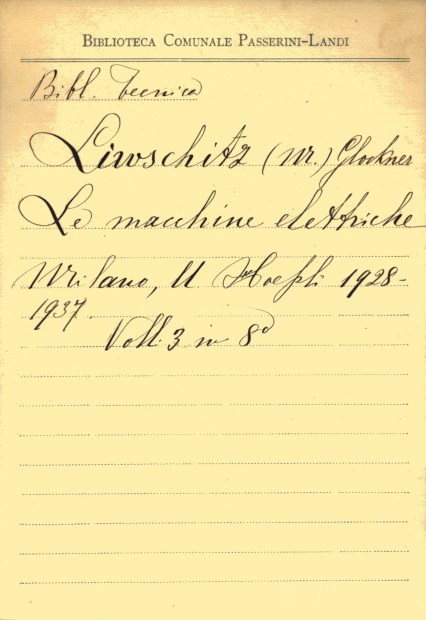 BIBLIOTECA COMUNALE PASSERINI-LANDI
Bibl. Tecnica
Liwschitz (M.) Glockner
Le macchine elettriche
Milano, U Hoepli 1928-
1937.
Voll. 3 in 8°